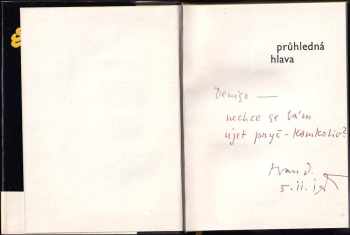 průhledná
hlava
Deniso —
nechce se Vám
ujet pryč – kamkoliv?
Ivan
5. II.